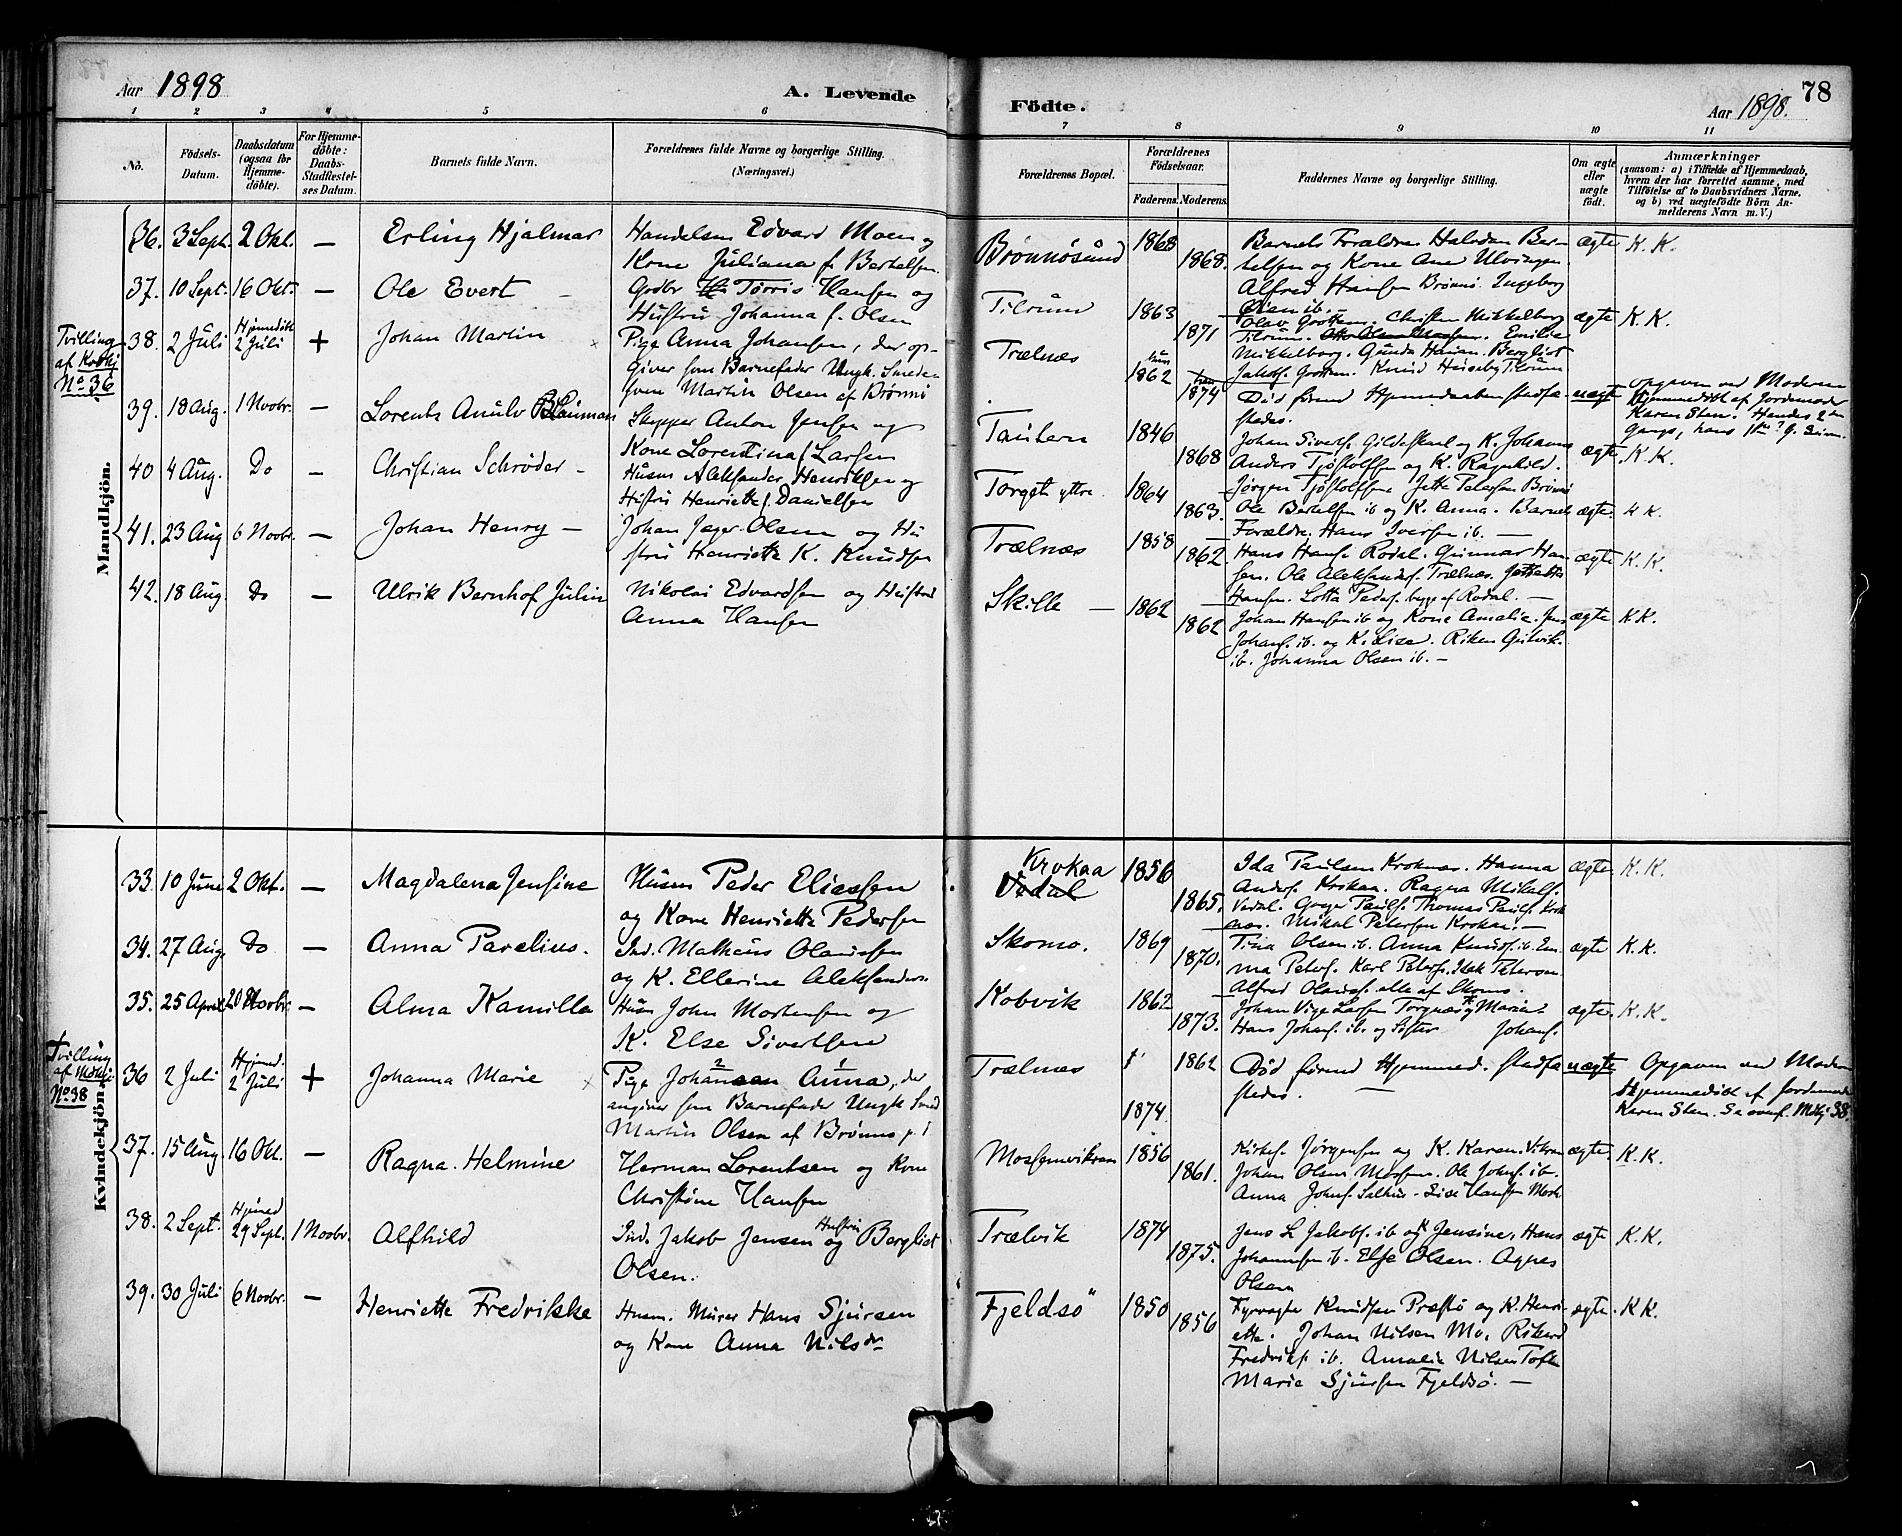 Aar 1898
A. Levende
Födte.
Aar 1898.
78
1 2 3 4 5 6 7 8 9 10 11
No.
Födsels-
Datum.
Daabsdatum
(ogsaa for
Hjemme-
döbte).
For Hjemme-
döbte:
Daabs-
Stadfæstel-
ses Datum.
Barnets fulde Navn.
Forældrenes fulde Navne og borgerlige Stilling.
(Næringsvei.)
Forældrenes Bopæl.
Forældrenes
Födselsaar.
Faderens. Moderens.
Faddernes Navne og borgerlige Stilling.
Om ægte
eller
uægte
födt.
Anmærkninger
(saasom: a) i Tilfælde af Hjemmedaab,
hvem der har forrettet samme, med
Tilföielse af to Daabsvidners Navne,
og b) ved uægtefödte Börn An-
melderens Navn m. V.)
Mandkjön.
36. 3 Sept. 2 Okt. — Erling Hjalmar
Handelsm Edvard Moen og
Kone Juliana f. Berthelsen.
Brønnøsund 1868 1868.
Barnets Forældre Halvdan Ber-
thelsen og Kone Ane Ulvingen.
Alfred Hansen Brønnø. Ingeborg
ægte K. K.
37. 10 Sept. 16 Okt. — Ole Evert —
Grdbr Tørris Hansen og
Hustru Johanna f. Olsen
Tilrum 1863 1871
Olav Grottem. Christen Mikkelborg
Tilrum. Emilie
Mikkelborg. Gunda Havan. Bergliot
Jakobs. Grottem. Knud Heiseby Tilrum
ægte K. K.
Tvilling
af Kvkj
No 36
38. 2 Juli Hjemmedøbt 2 Juli + Johan Martin
Pige Anna Johansen, der op-
giver som Barnefader Ungk. Smeden
Martin Olsen af Brønnø
Trælnæs hun 1862 han 1874
Død førend Hjemmedaaben stadfæ-
stedes.
uægte
Opgaven ved Moderen
Hjemmedøbt af Jordemoder
Karen Sten. Hendes 2den
Gangs, hans 1ste?
39. 18 Aug. 1 Novbr. — Lorents Anulv
Skipper Anton Jensen og
Kone Lorentina f. Larsen
1846 1868
Johan Siverts. Gildeskaal og K. Johanna
Anders Tjøstolfsen og K. Ragnhild.
Jørgen Tjøstolfsen Jette Petersen Brønnø
ægte K. K.
40 4 Aug. Do — Christian Schrøder —
Husm Aleksander Henriksen og
Hustru Henriette f. Danielsen
Torget yttre 1864 1863.
Ole Berthelsen ib og K. Anna. Barnets
Forældre. Hans Iversen ib. —
ægte. K K.
41. 23 Aug 6 Novbr. — Johan Henry —
Johan Jager Olsen og Hu
stru Henriette K. Knudsen
Trælnæs 1858 1862.
Hans Hans. Rodal. Gunnar Han-
sen. Ole Aleksanders. Trælnæs.
Hansen. Lotta Peders. begge af Rodal. —
ægte K. K.
42. 18 Aug. Do — Ulrik Bernhof Julin
Nikolai Edvardsen og Hustru
Anna Hansen
Skille — 1862 1862
Johan Hansen ib og Kone Amalie. Jens
Johans. ib. og K. Lise. Riken Gulvik.
ib. Johanna Olsen ib. —
ægte K K.
Kvindekjön.
33. 10 June 2 Okt. — Magdalena Jensine
Husm Peder Eliassen
og Kone Henriette Pedersen
Krokaa
Vedal 1856 1865.
Ida Paulsen Kroknes. Hanna
Anders. Krokaa. Ragna Mikals.
Vedal. Pauls. Thomas Pauls. Krok
nes. Mikal Petersen Krokaa. —
ægte. K. K.
34. 27 Aug. Do — Anna Parelius.
Ind. Mathæus Olaussen
og K. Ellerine Aleksanders.
Skomo. 1869 1870.
Tina Olsen ib. Anna Knuds. ib. Em
ma Peters. Karl Peters. Petersen
Alfred Olauss. alle af Skomo.
ægte K. K.
35. 25 April 20 Novbr. — Alma Kamilla
Husm John Mortensen og
K. Else Sivertsen
Kobvik 1862 1873.
Johan Vige Larsen Torgnæs og K. Marie.
Hans Johans. ib. og Søster Johans.
ægte. K. K.
Tvilling
af Mdkj.
No 38
36 2 Juli Hjmmed. 2 Juli + Johanna Marie
Pige Johansen Anna, der
angiver som Barnefader Ungk Smed
Martin Olsen af Brønnø
Trælnæs 1862 1874.
Død førend Hjemmed. stadfæ
stedes. —
uægte
Opgaven ved Moderen
Hjemmedøbt af Jordemoder
Karen Sten. Se ovenf. Mdkj 38.
37. 15 Aug. 16 Okt. — Ragna. Helmine
Herman Lorentsen og Kone
Christine Hansen
Mosheimvikran 1856 1861.
Kirkes. Jørgensen og K. Karen. Vikran
Johan Olsen Mosem. Ole Johns. ib.
Anna Johns. Salhus. Lise Hansen Mosh
ægte. K. K.
38. 2 Sept. Hjmed 29 Sept. 1 Novbr. Alfhild
Ind. Jakob Jensen og Hustru Bergliot
Olsen.
Trælvik 1874 1875.
Jens L Jakobs. ib og K Jensine. Hans
Johannesen ib. Else Olsen. Agnes
Olsen
ægte K. K.
39. 30 Juli 6 Novbr. — Henriette Fredrikke
Husm. Murer Hans Sjursen
og Kone Anna Nilsdr
Fjeldsö 1850 1856
Fyrvogter Knudsen Præstø og K. Henri-
ette. Johan Nilsen Mo. Rikard
Fredriks. ib. Amalie Nilsen Toft
Marie Sjursen Fjeldsö. —
ægte. K K.